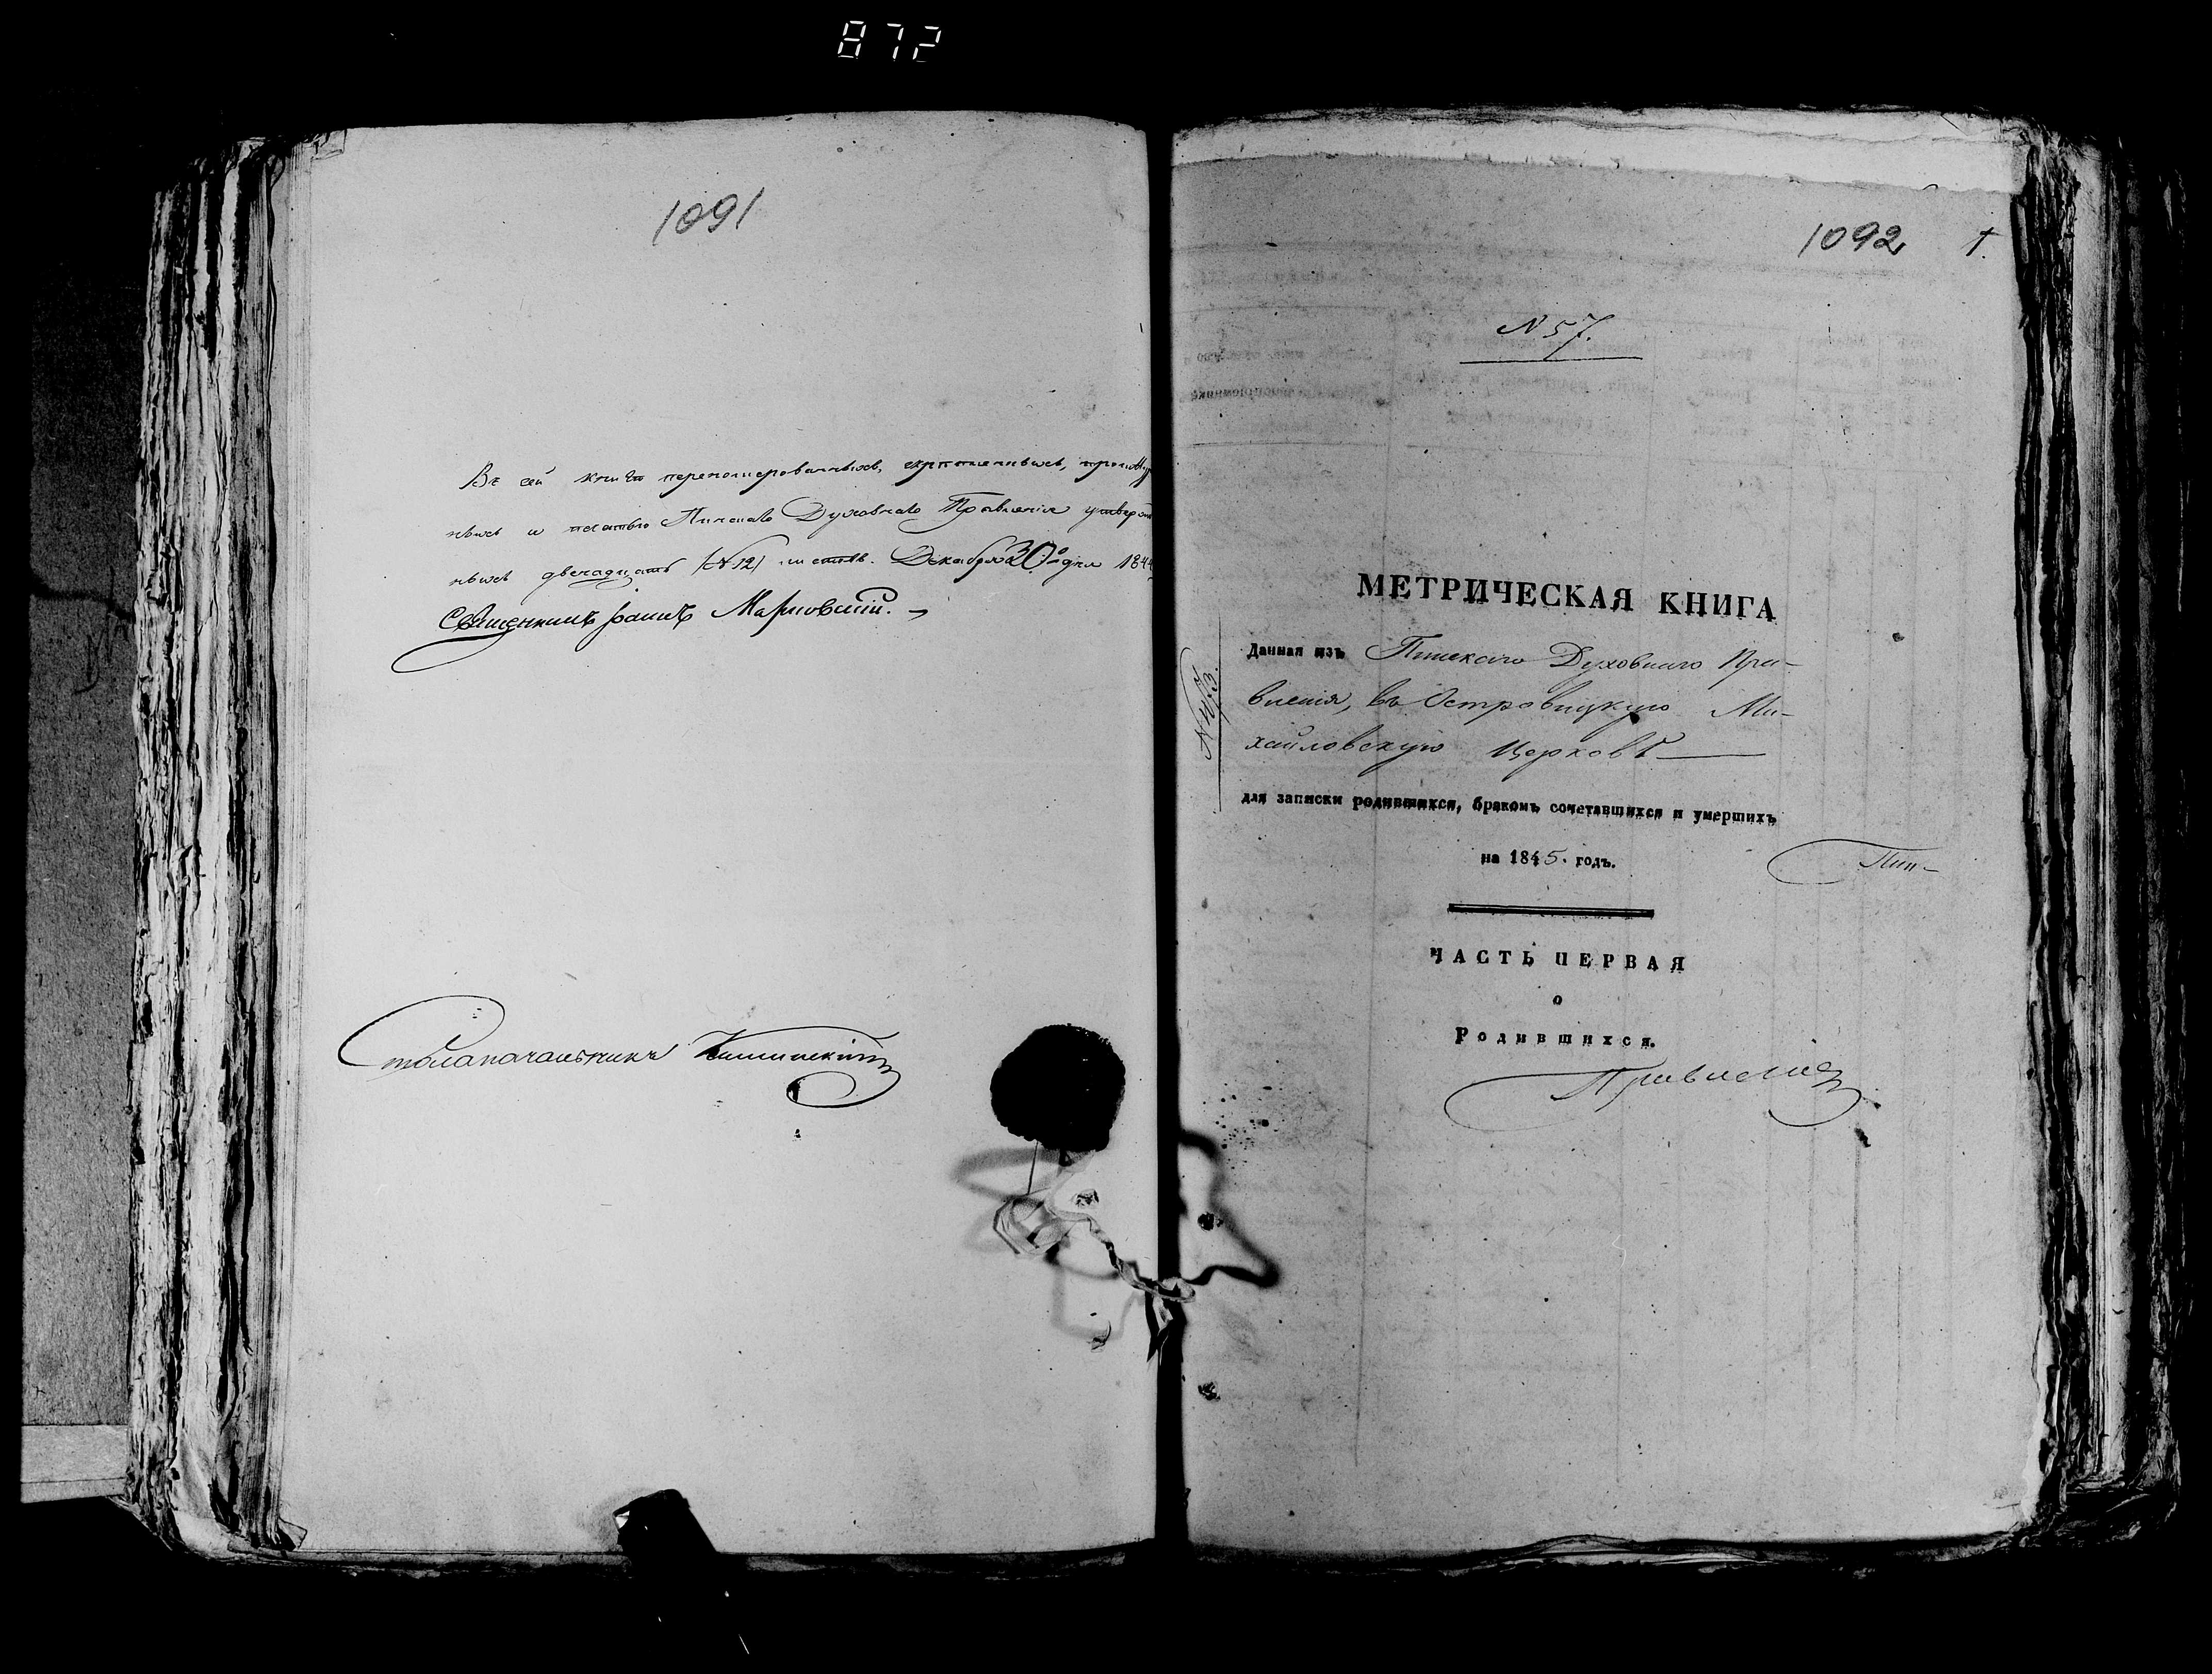 872
1091
Въ сей книгѣ перенумерованныхъ, скрѣпленныхъ, прошну
ныхъ и печатью Пинскаго Духовнаго Правленія утверж
ныхъ двенадцать (№ 12) листовъ. Декабря 30го дня 1844
Священникъ Іоаннъ
Столоначальникъ
1092 1.
N 57.
МЕТРИЧЕСКАЯ КНИГА
Данная изъ Пинскаго Духовнаго Пра-
вленія, въ Островицкую Ми-
хайловскую Церковь
для записки родившихся, бракомъ сочетавшихся и умершихъ
на 1845. годъ.
Пин-
ЧАСТЬ ПЕРВАЯ
о
Родившихся.
Правленія